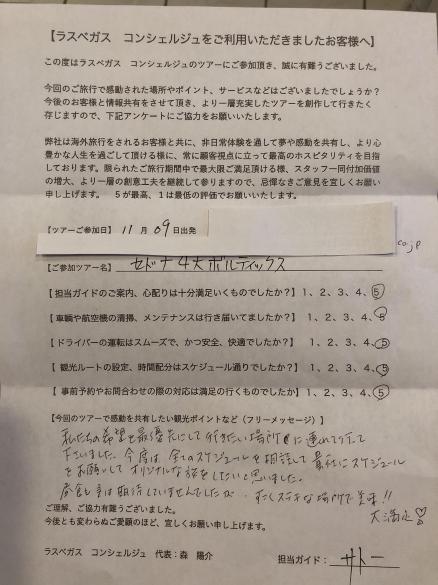 【ラスベガス　コンシェルジュをご利用いただきましたお客様へ】
この度はラスベガス　コンシェルジュのツアーにご参加頂き、誠に有難うございました。
今回のご旅行で感動された場所やポイント、サービスなどはございましたでしょうか？
今後のお客様と情報共有をさせて頂き、より一層充実したツアーを創作して行きたく
存じますので、下記アンケートにご協力をお願いいたします。
弊社は海外旅行をされるお客様と共に、非日常体験を通して夢や感動を共有し、より心
豊かな人生を過ごして頂ける様に、常に顧客視点に立って最高のホスピタリティを目指
しております。限られたご旅行期間中で最大限ご満足頂ける様、スタッフ一同付加価値
の増大、より一層の創意工夫を継続して参りますので、忌憚なきご意見を宜しくお願い
申し上げます。　５が最高、１は最低の評価でお願いします。
【ツアーご参加日】 11 月 09 日出発
co.jp
【ご参加ツアー名】 セドナ4大ボルテックス
【担当ガイドのご案内、心配りは十分満足いくものでしたか？】 1、2、3、4、5
【車輌や航空機の清掃、メンテナンスは行き届いてましたか？】 1、2、3、4、5
【ドライバーの運転はスムーズで、かつ安全、快適でしたか？】 1、2、3、4、5
【観光ルートの設定、時間配分はスケジュール通りでしたか？】 1、2、3、4、5
【事前予約やお問合わせの際の対応は満足の行くものでしたか】 1、2、3、4、5
【今回のツアーで感動を共有したい観光ポイントなど（フリーメッセージ）】
私たちの希望を最優先にして行きたい場所に連れて行って
下さいました。今度は全てのスケジュールを相談して最高にスケジュール
をお願いして オリジナルな旅をしたいと思いました。
昼食も実は期待していませんでしたが… すごくステキな場所で美味!!
大満足
ご理解、ご協力有難うございました。
今後とも変わらぬご愛顧のほど、宜しくお願い申し上げます。
ラスベガス　コンシェルジュ　代表：森　陽介
担当ガイド： サトー